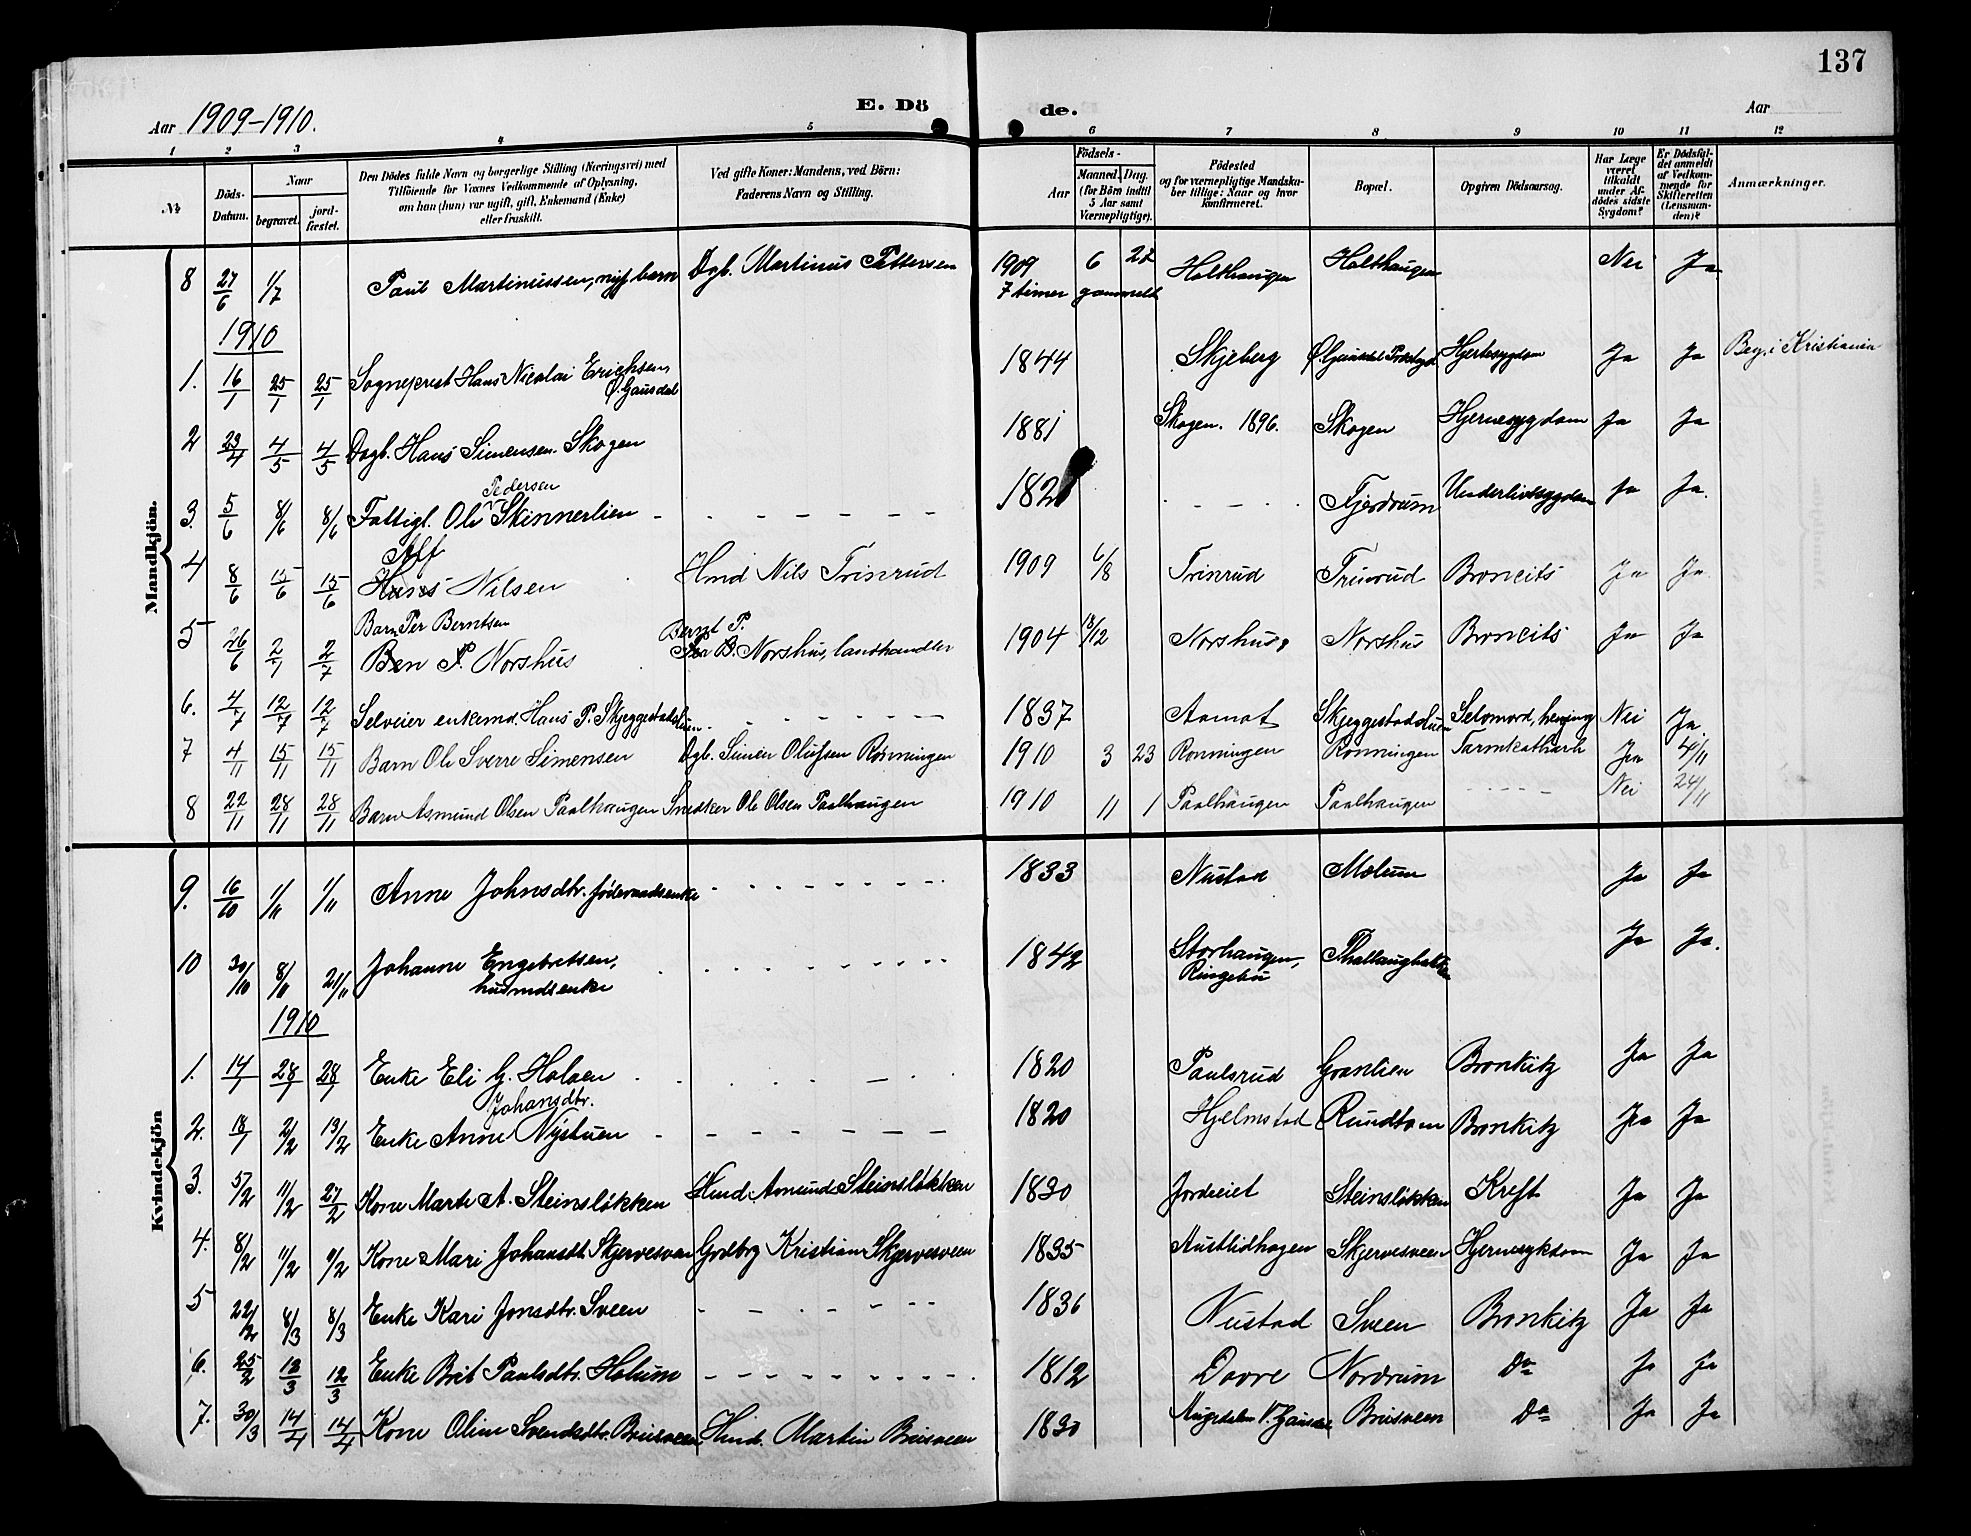 137
E. Dö de.
Aar 1909-1910. Aar
1 2 3 4 5 6 7 8 9 10 11 12
No Döds-Datum. Naar begravet. jordfæstet. Den Dödes fulde Navn og borgerlige Stilling (Næringsvei) med Tilföiende for Voxnes Vedkommende af Oplysning, om han (hun) var ugift, gift, Enkemand (Enke) eller fraskilt. Ved gifte Koner: Mandens, ved Börn: Faderens Navn og Stilling. Födsels- Aar Maaned. Dag. (for Börn indtil 5 Aar samt Værnepligtige). Födested og for værnepligtige Mandskaber tillige: Naar og hvor konfirmeret. Bopæl. Opgiven Dödsaarsag. Har Læge været tilkaldt under Afdödes sidste Sygdom? Er Dödsfaldet anmeldt af Vedkommende for Skifteretten (Lensmanden)? Anmærkninger.
Mandkjön.
8 27/6 1/7 Paul Martinussen, barn Dgb. Martinus Pettersen 1909 6 27 Holthaugen Holthaugen Nei Ja
7 timer gammelt
1910
1. 16/1 25/1 25/1 Sogneprest Hans Nicolai Erichsen, Ø. Gausdal 1844 Skjeberg Hjertesygdom Ja Ja Begr. i Kristiania
2 23/4 4/5 4/5 Dagl. Hans Simensen Skogen 1881 Skogen. 1896. Skogen Hjernesygdom Ja Ja
3. 5/6 8/6 8/6 Fattigl. Ole Pedersen Skinnerlien - - - - - - - - - - Fjerdrum Underlivssygdom Ja Ja.
4 8/6 15/6 15/6 Alf Hans Nilsen Hmd Nils Trinrud 1909 6/8 Trinrud Trinrud Broncits Ja Ja
5 26/6 2/7 2/7 Barn Per Berntsen Norshus Bernt P. Norshus, landhandler 1904 18/12 Norshus Norshus Broncits Ja Ja
6. 4/7 12/7 12/7 Selveier enkemd. Hans P. Skjeggestadstuen - - - - - - - 1837 Aamot Skjeggestadstuen Selvmord, hening Nei Ja.
7 4/11 15/11 15/11 Barn Ole Sverre Simensen Dgb. Simen Olufsen Rønningen 1910 3 23 Rønningen Rønningen Tarmkatharh Ja 4/11
8 22/11 28/11 28/11 Barn Asmund Olsen Paalhaugen Snedker Ole Olsen Paalhaugen 1910 11 1 Paalhaugen Paalhaugen - - - - - Nei 24/11
Kvindekjön
9. 16/10 1/11 1/11 Anne Johnsdtr. føderaadsenke - - - - - - - - 1833 Nustad Mælum Ja Ja
10 30/10 8/11 21/11 Johanne Engebretsen, husmdsenke - - - - - - - - 1842 Storhaugen, Ringebu Ja Ja.
1910
1. 14/1 28/1 28/1 Enke Eli G. Holoen - - - - - 1820 Paulsrud Granlien Bronkitz Ja Ja
2. 18/1 2/2 13/2 Enke Anne Johansdtr. Nystuen - - - - - - - 1820 Hjelmstad Rundtom Bronkitz Ja Ja
3. 5/2 11/2 27/2 Kone Marte A. Steinsløkken Hmd. Amund Steinsløkken 1830 Jordeiet Steinsløkken Kreft Ja Ja
4. 8/2 11/2 9/2 Kone Mari Johansdt. Skjervesveen Grdbrg Kristian Skjervesveen 1835 Austlidhagen Skjervesveen Hjernesykdom Ja Ja
5 22/2 8/3 8/3 Enke Kari Jonsdtr. Sveen - - - - - - 1836 Nustad Sveen Bronkitz Ja Ja
6. 25/2 12/3 12/3 Enke Brit Paulsdtr. Holum - - - - - - - - - - 1812 Dovre Nordrum Do Ja Ja
7. 30/3 14/4 14/4 Kone Oline Svendsdtr. Brusveen Hmd. Martin Brusveen 1830 V. Gausdal Brusveen Do Ja Ja